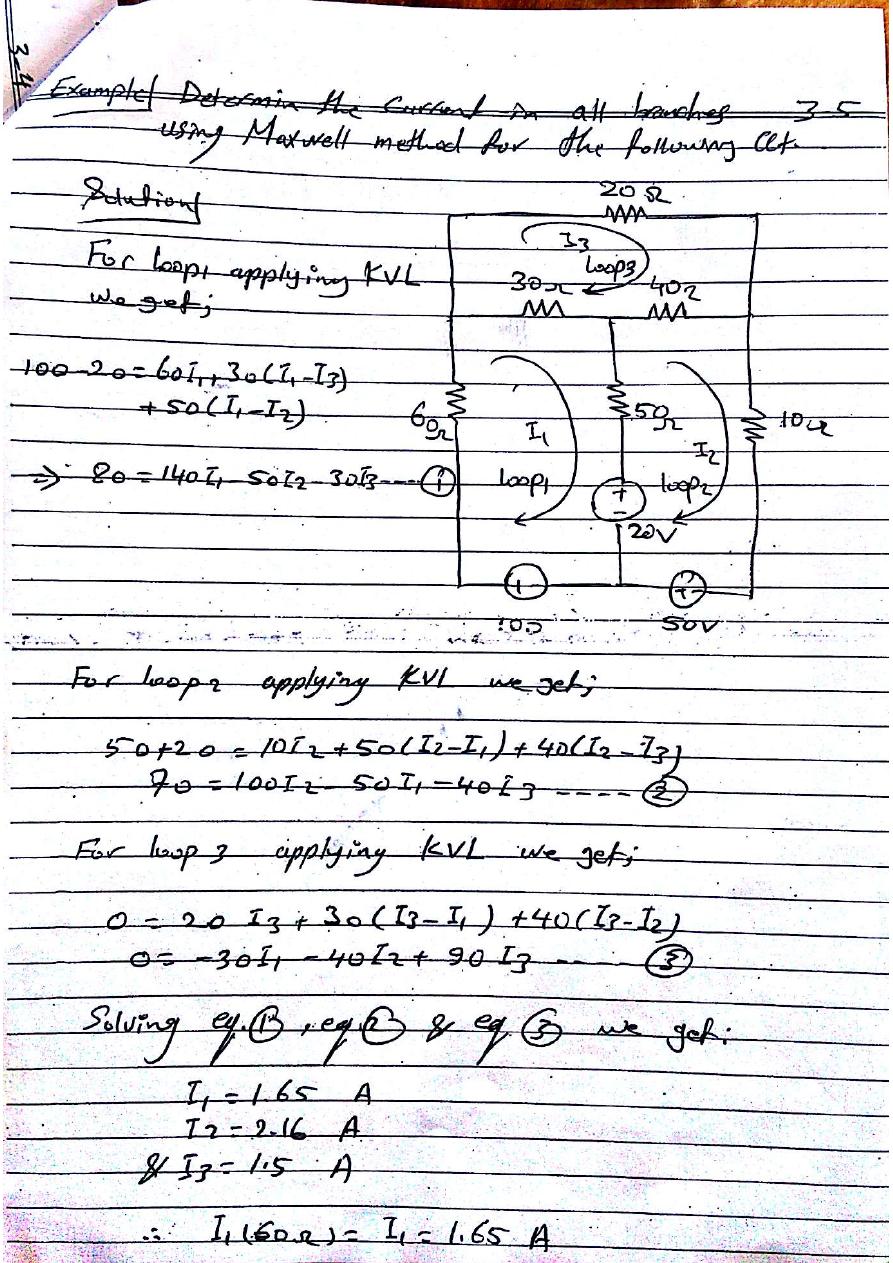 3-4
Example/ Determin the Current in all branches 3-5
using Maxwell method for the following CCt.
Solution/
For loop1 applying KVL
we get;
100-20 = 60I1 + 30(I1-I3)
+ 50(I1-I2)
⇒ 80 = 140I1 - 50I2 - 30I3 --- ①
20Ω
I3
loop3
30Ω 40Ω
60Ω
I1
loop1
50Ω
I2
loop2
10Ω
+
-
20V
100
50V
For loop2 applying KVL we get;
50+20 = 10I2 + 50(I2-I1) + 40(I2-I3)
70 = 100I2 - 50I1 - 40I3 ---- ②
For loop 3 applying KVL we get;
0 = 20 I3 + 30(I3-I1) + 40(I3-I2)
0 = -30I1 - 40I2 + 90 I3 ---- ③
Solving eq.①, eq.② & eq.③ we get:
I1 = 1.65 A
I2 = 2.16 A
& I3 = 1.5 A
∴ I1(60Ω) = I1 = 1.65 A